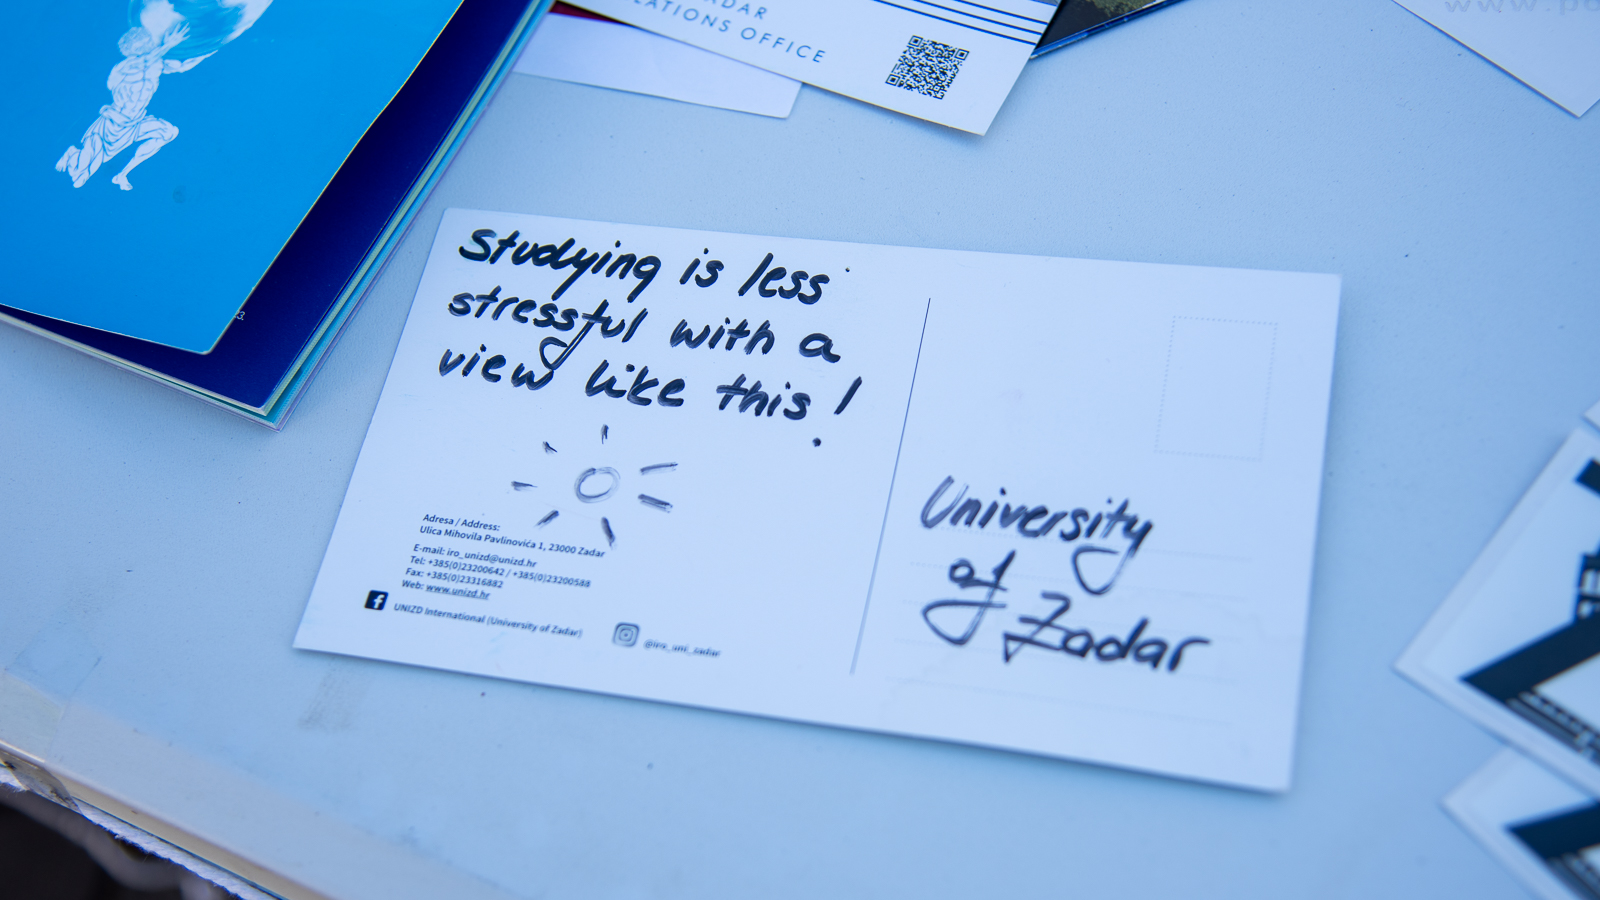 DAR
LATIONS OFFICE
Studying is less
stressful with a
view like this!
Adresa / Address:
Ulica Mihovila Pavlinovića 1, 23000 Zadar
E-mail: iro_unizd@unizd.hr
Tel: +385(0)23200642 / +385(0)23200588
Fax: +385(0)23316882
Web: www.unizd.hr
UNIZD International (University of Zadar)
@iro_uni_zadar
University
of
Zadar